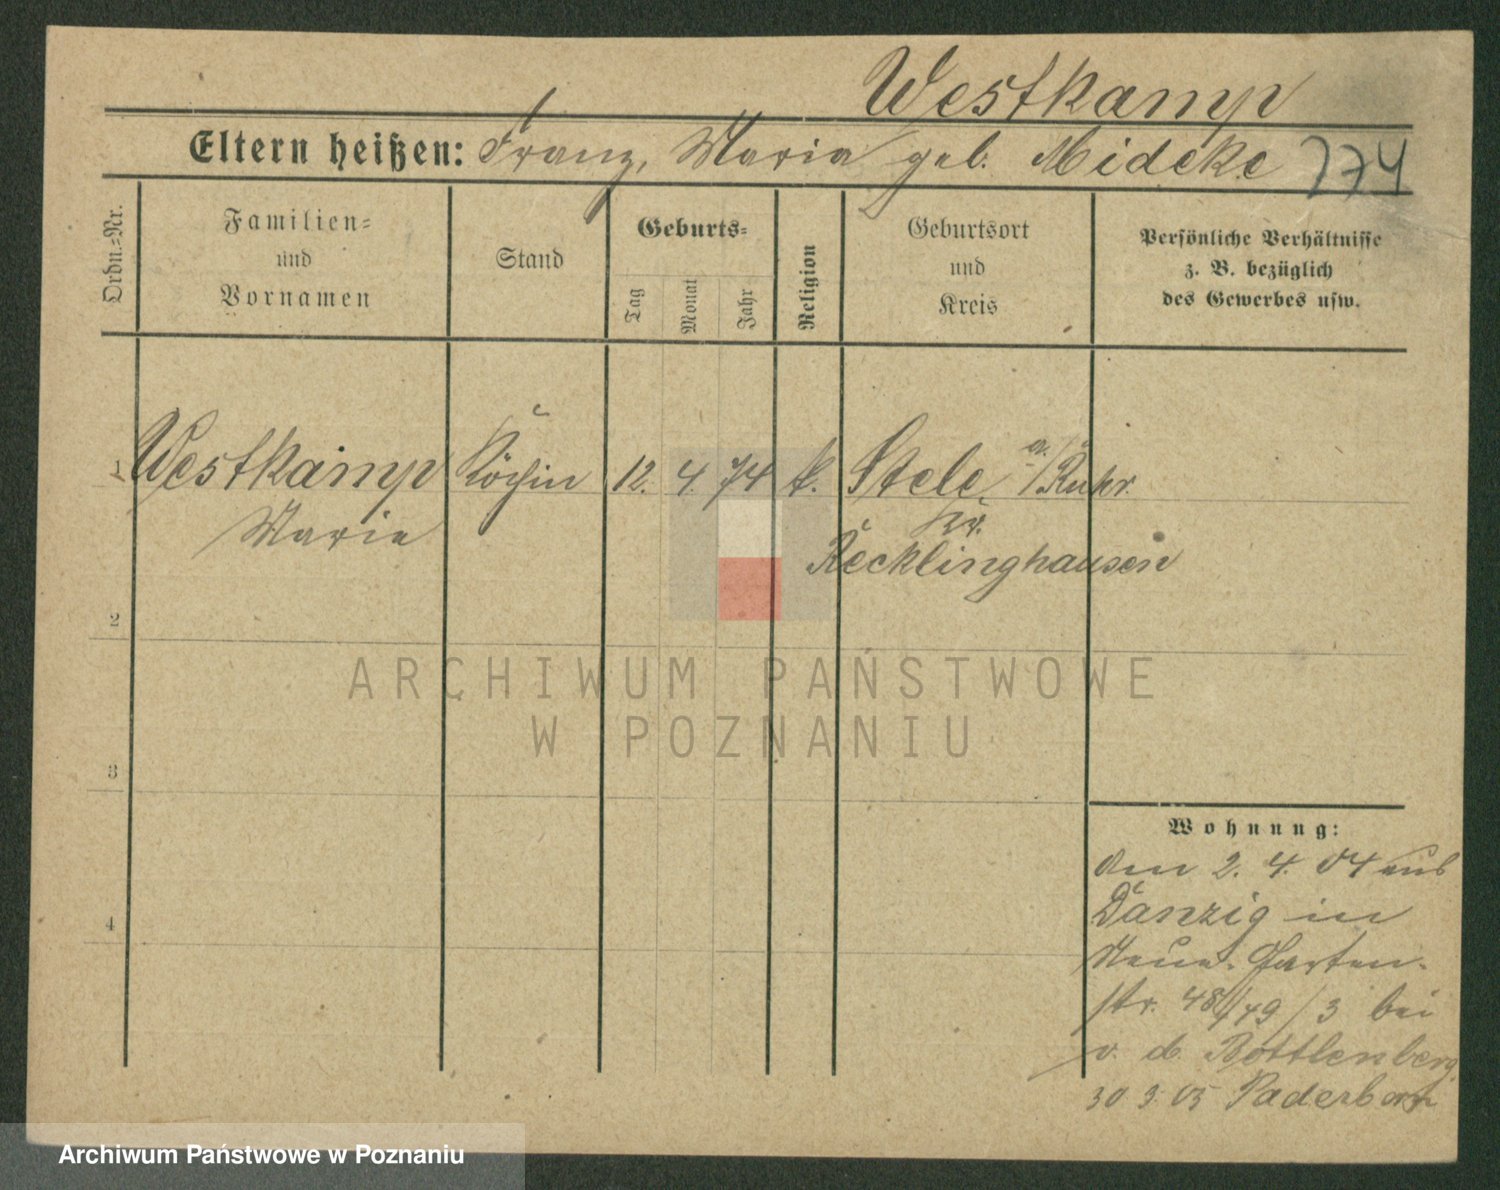 Westkamp
Eltern heißen: Franz, Maria geb. Mideke 774
Ordn.=Nr.
Familien=
und
Vornamen
Stand
Geburts=
Tag
Monat
Jahr
Religion
Geburtsort
und
Kreis
Persönliche Verhältnisse
z. B. bezüglich
des Gewerbes usw.
1 Westkamp Köchin 12. 4. 74 k. Stele a/Ruhr.
Marie Kr.
Recklinghausen
2
3
4
Wohnung:
den 2. 4. 04 aus
Danzig in
Neue Garten-
str. 48/49/3 bei
v. d. Bottlenberg
30 3. 05 Paderborn
ARCHIWUM PAŃSTWOWE
W POZNANIU
Archiwum Państwowe w Poznaniu